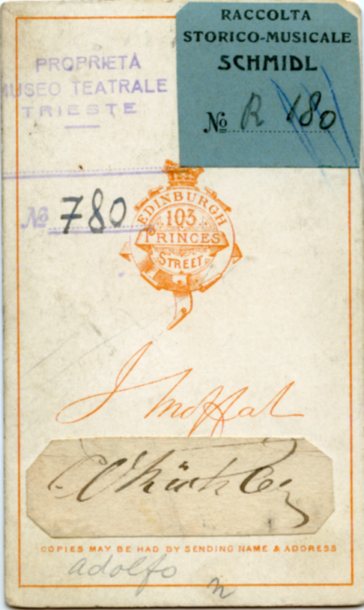 RACCOLTA
STORICO-MUSICALE
SCHMIDL
No R 180
PROPRIETÀ
MUSEO TEATRALE
TRIESTE
No 780
EDINBURGH
103
PRINCES
STREET
J Moffat
COPIES MAY BE HAD BY SENDING NAME & ADDRESS
adolfo